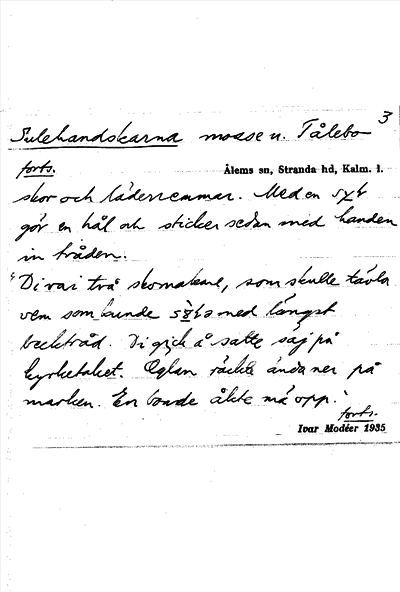 3
Sulehandskarna mosse u. Tålebo
forts.
Ålems sn, Stranda hd, Kalm. l.
skor och läderremmar. Med en syl
gör en hål och sticker sedan med handen
in tråden.
"Di va i två skomakare, som skulle tävla
vem som kunde med längst
becktråd. Di gick å satte säj på
kyrketaket. Öglan räckte ända ner på
marken. En bonde åkte må opp.
forts.
Ivar Modéer 1935